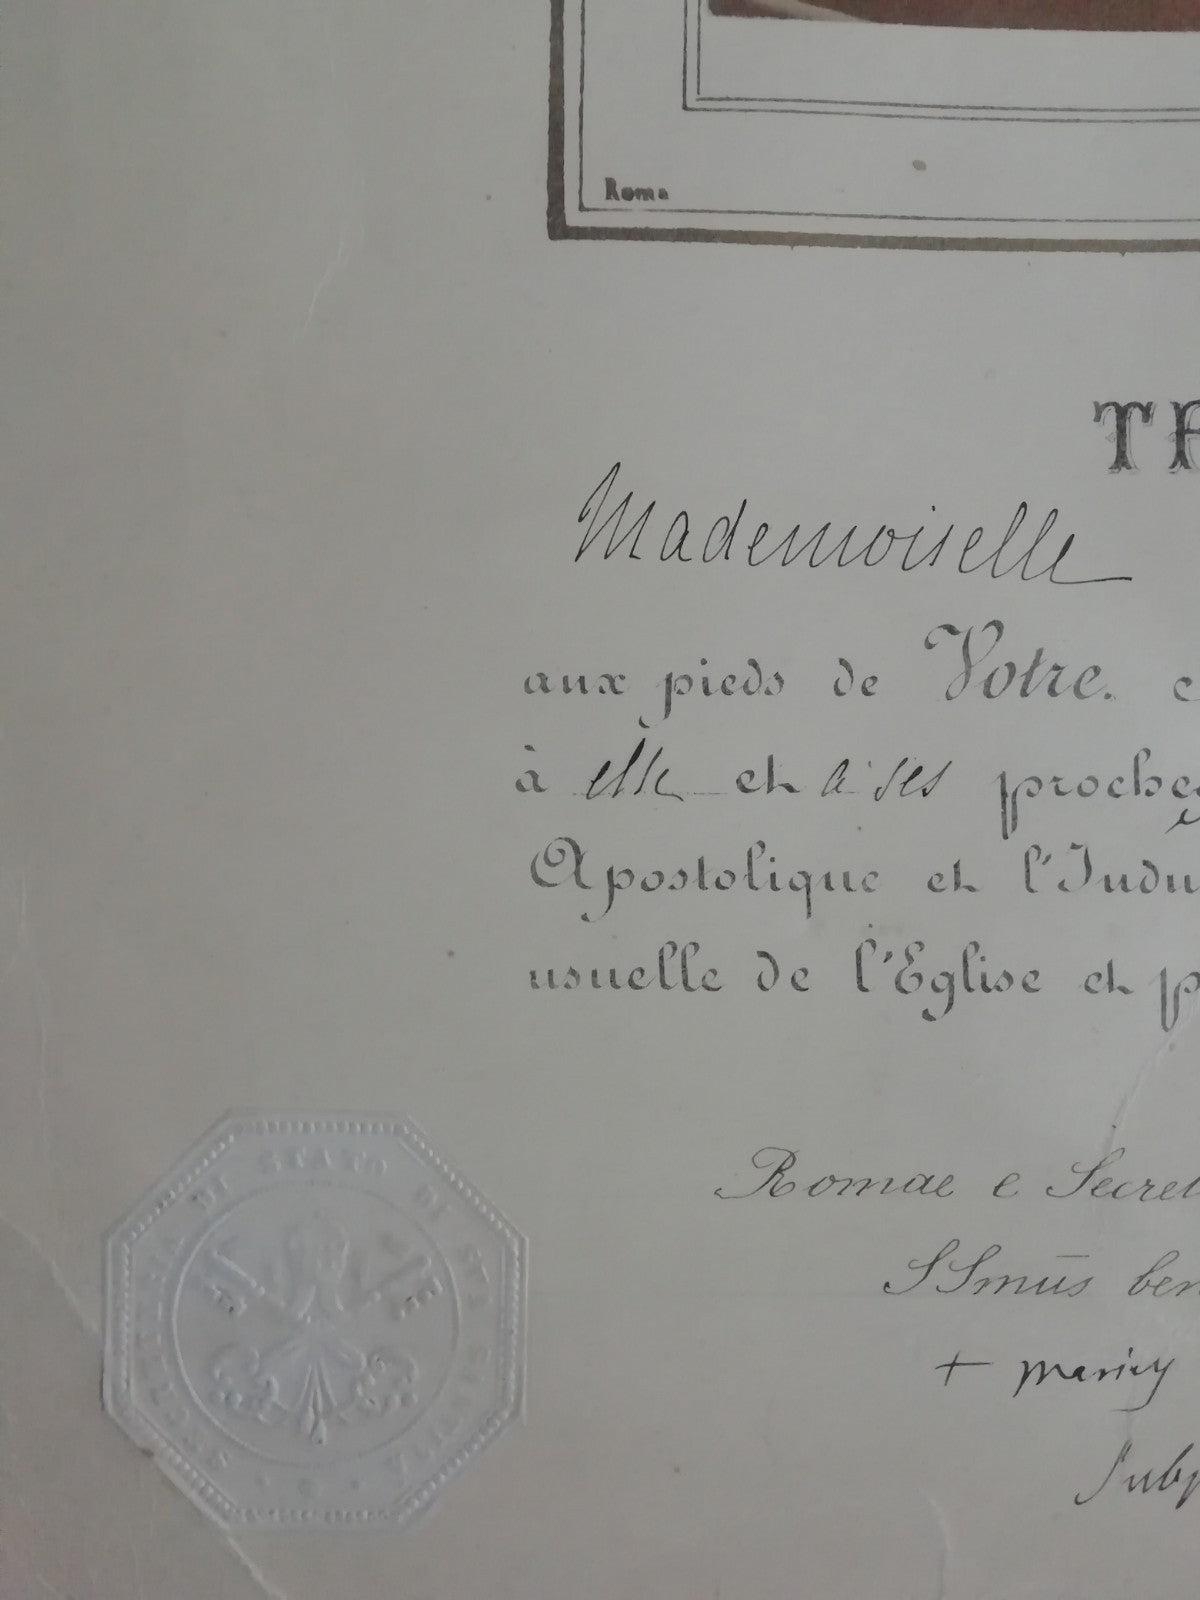 Roma
TR
Mademoiselle
aux pieds de Votre
à elle et à ses proches
Apostolique et l'Indu
usuelle de l'Eglise et p
Romae e Secret
SSmūs ben
+
Subp
SEGRETERIA DI STATO DI SUA SANTITA